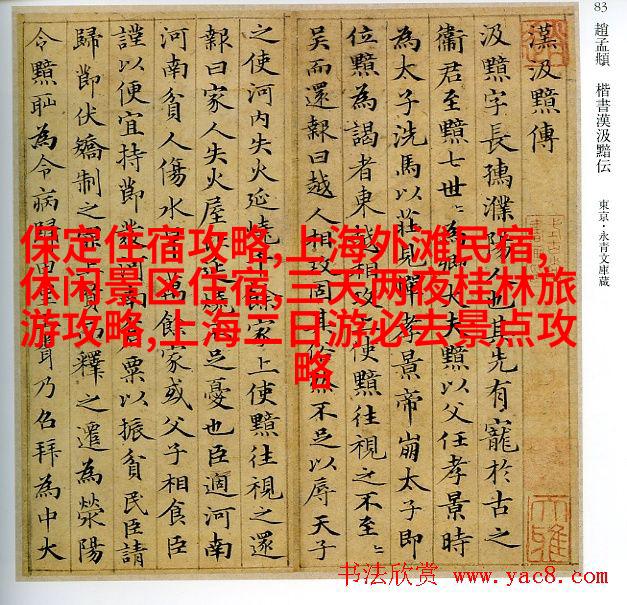 83
趙孟頫 楷書漢汲黯伝
東京・永青文庫蔵
漢汲黯傳
汲黯字長孺濮陽人也其先有寵於古之
衞君至黯七世〻為卿大夫黯以父任孝景時
為太子洗馬以莊見憚孝景帝崩太子即
位黯為謁者東越相攻上使黯往視之不至〻
吴而還報曰越人相攻固其俗然不足以辱天子
之使河内失火延燒千餘家上使黯往視之還
報曰家人失火屋比延燒不足憂也臣過河南
河南貧人傷水旱萬餘家或父子相食臣
謹以便宜持節發河南倉粟以振貧民臣請
歸節伏矯制之罪上賢而釋之遷為滎陽
令黯恥為令病歸田里乃召拜為中大
保定住宿攻略,上海外滩民宿,
休闲景区住宿,三天两夜桂林旅
游攻略,上海二日游必去景点攻
略
书法欣赏 www.yac8.com